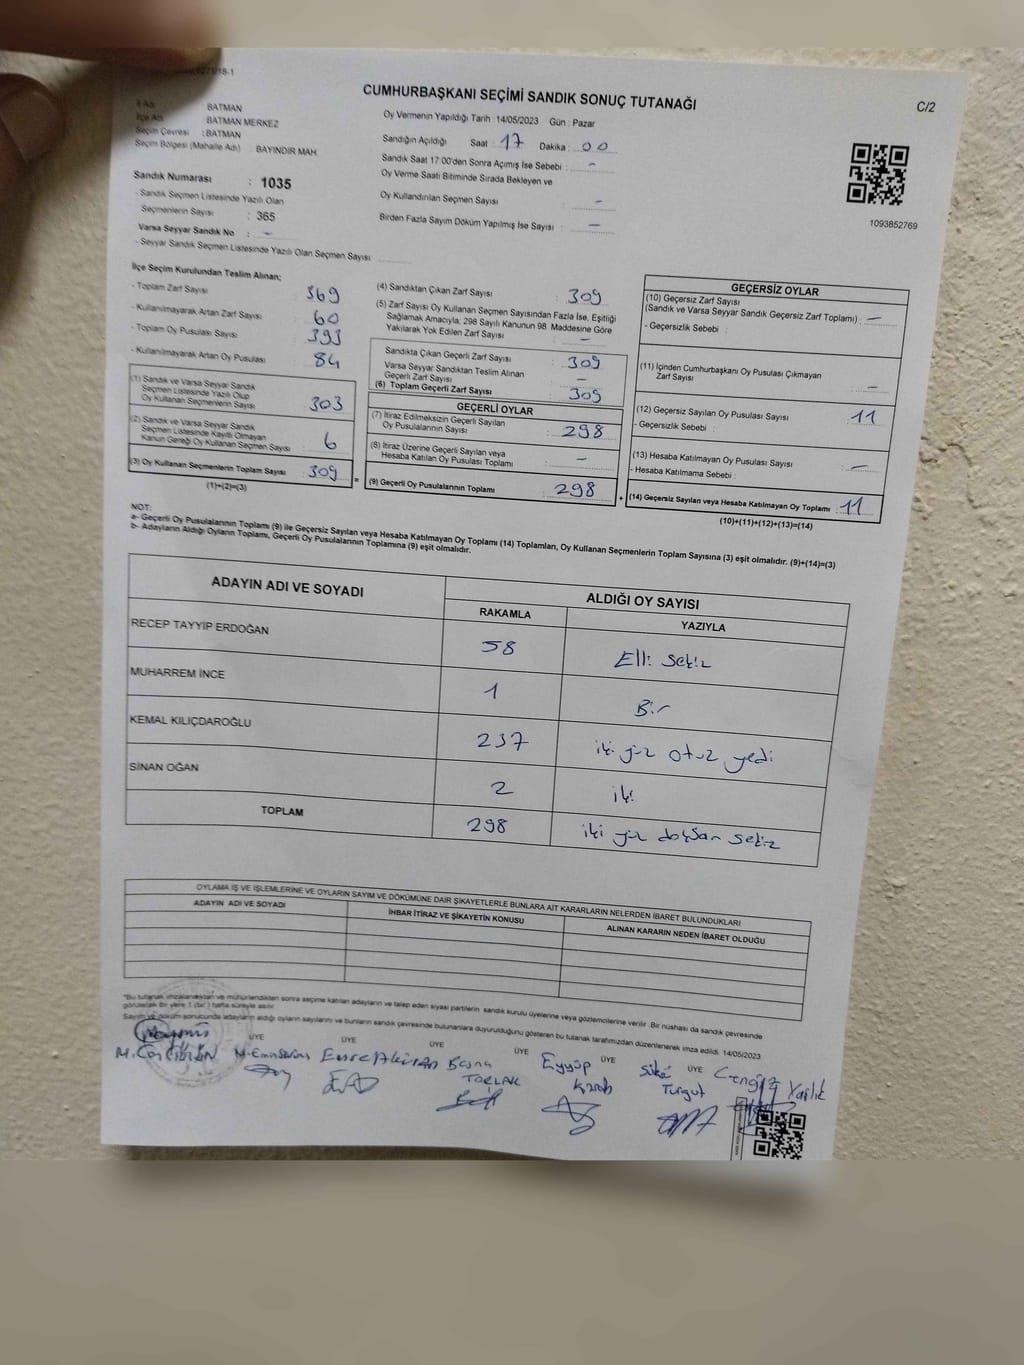 18-1
CUMHURBAŞKANI SEÇİMİ SANDIK SONUÇ TUTANAĞI
C/2
İl Adı : BATMAN
İlçe Adı : BATMAN MERKEZ
Seçim Çevresi : BATMAN
Seçim Bölgesi (Mahalle Adı) BAYINDIR MAH
Oy Vermenin Yapıldığı Tarih : 14/05/2023 Gün : Pazar
Sandığın Açıldığı Saat : 17 Dakika : 00
Sandık Saat 17:00'den Sonra Açılmış İse Sebebi : -
Oy Verme Saati Bitiminde Sırada Bekleyen ve
Oy Kullandırılan Seçmen Sayısı : -
Birden Fazla Sayım Döküm Yapılmış İse Sayısı : -
1093852769
Sandık Numarası : 1035
- Sandık Seçmen Listesinde Yazılı Olan
Seçmenlerin Sayısı : 365
Varsa Seyyar Sandık No : -
- Seyyar Sandık Seçmen Listesinde Yazılı Olan Seçmen Sayısı
İlçe Seçim Kurulundan Teslim Alınan;
- Toplam Zarf Sayısı : 369
- Kullanılmayarak Artan Zarf Sayısı : 60
- Toplam Oy Pusulası Sayısı : 393
- Kullanılmayarak Artan Oy Pusulası : 84
(1) Sandık ve Varsa Seyyar Sandık
Seçmen Listesinde Yazılı Olup
Oy Kullanan Seçmenlerin Sayısı : 303
(2) Sandık ve Varsa Seyyar Sandık
Seçmen Listesinde Kayıtlı Olmayan
Kanun Gereği Oy Kullanan Seçmen Sayısı : 6
(3) Oy Kullanan Seçmenlerin Toplam Sayısı : 309
(1)+(2)=(3)
(4) Sandıktan Çıkan Zarf Sayısı : 309
(5) Zarf Sayısı Oy Kullanan Seçmen Sayısından Fazla İse, Eşitliği
Sağlamak Amacıyla; 298 Sayılı Kanunun 98. Maddesine Göre
Yakılarak Yok Edilen Zarf Sayısı : -
Sandıkta Çıkan Geçerli Zarf Sayısı : 309
Varsa Seyyar Sandıktan Teslim Alınan
Geçerli Zarf Sayısı : -
(6) Toplam Geçerli Zarf Sayısı : 309
GEÇERLİ OYLAR
(7) İtiraz Edilmeksizin Geçerli Sayılan
Oy Pusulalarının Sayısı : 298
(8) İtiraz Üzerine Geçerli Sayılan veya
Hesaba Katılan Oy Pusulası Toplamı : -
(9) Geçerli Oy Pusulalarının Toplamı : 298
GEÇERSİZ OYLAR
(10) Geçersiz Zarf Sayısı
(Sandık ve Varsa Seyyar Sandık Geçersiz Zarf Toplamı) : -
- Geçersizlik Sebebi :
(11) İçinden Cumhurbaşkanı Oy Pusulası Çıkmayan
Zarf Sayısı : -
(12) Geçersiz Sayılan Oy Pusulası Sayısı : 11
- Geçersizlik Sebebi :
(13) Hesaba Katılmayan Oy Pusulası Sayısı : -
- Hesaba Katılmama Sebebi :
(14) Geçersiz Sayılan veya Hesaba Katılmayan Oy Toplamı : 11
(10)+(11)+(12)+(13)=(14)
NOT:
a- Geçerli Oy Pusulalarının Toplamı (9) ile Geçersiz Sayılan veya Hesaba Katılmayan Oy Toplamı (14) Toplamları, Oy Kullanan Seçmenlerin Toplam Sayısına (3) eşit olmalıdır. (9)+(14)=(3)
b- Adayların Aldığı Oyların Toplamı, Geçerli Oy Pusulalarının Toplamına (9) eşit olmalıdır.
ADAYIN ADI VE SOYADI ALDIĞI OY SAYISI
RAKAMLA YAZIYLA
RECEP TAYYİP ERDOĞAN 58 Elli sekiz
MUHARREM İNCE 1 Bir
KEMAL KILIÇDAROĞLU 237 iki yüz otuz yedi
SİNAN OĞAN 2 iki
TOPLAM 298 iki yüz doksan sekiz
OYLAMA İŞ VE İŞLEMLERİNE VE OYLARIN SAYIM VE DÖKÜMÜNE DAİR ŞİKAYETLERLE BUNLARA AİT KARARLARIN NELERDEN İBARET BULUNDUKLARI
ADAYIN ADI VE SOYADI İHBAR İTİRAZ VE ŞİKAYETİN KONUSU ALINAN KARARIN NEDEN İBARET OLDUĞU
*Bu tutanak imzalanmaktan ve mühürlendikten sonra seçime katılan adayların ve talep eden siyasi partilerin sandık kurulu üyelerine veya gözlemcilerine verilir. Bir nüshası da sandık çevresinde
görülecek bir yere 1 (bir) hafta süreyle asılır.
Sayım ve döküm sonucunda adayların aldığı oyların sayılarını ve bunların sandık çevresinde bulunanlara duyurulduğunu gösteren bu tutanak tarafımızdan düzenlenerek imza edildi. 14/05/2023
ÜYE ÜYE ÜYE ÜYE ÜYE ÜYE
Eyyüp
Turgut
Cengiz